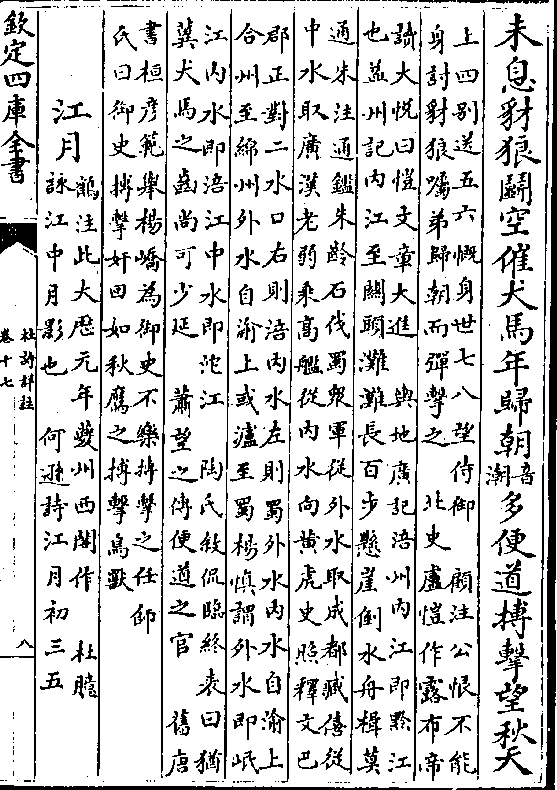 未息豺狼鬬空催犬馬年歸朝音潮多便道搏擊望秋天
上四别送五六慨身世七八望侍御 顧注公恨不能
身討豺狼囑弟歸朝而彈擊之 北史盧愷作露布帝
讀大悦曰愷文章大進 輿地廣記涪州内江即黔江
也益州記内江至關頭灘灘長百步懸崖倒水舟楫莫
通朱注通鑑朱齡石伐蜀衆軍從外水取成都臧僖從
中水取廣漢老弱乘高艦從内水向黄虎史炤釋文巴
郡正對二水口右則涪内水左則蜀外水内水自渝上
合州至綿州外水自渝上或瀘至蜀楊慎謂外水即岷
江内水即涪江中水即沱江 陶氏敘侃臨終表曰猶
冀犬馬之齒尚可少延 蕭望之傳便道之官 舊唐
書桓彦範舉楊嶠為御史不樂搏擊之任 邵
氏曰御史搏擊奸回如秋鷹之搏擊鳥獸
江月
鶴注此大厯元年夔州西閣作 杜臆
詠江中月影也 何遜詩江月初三五
欽定四庫全書
杜詩詳註
卷十七
八